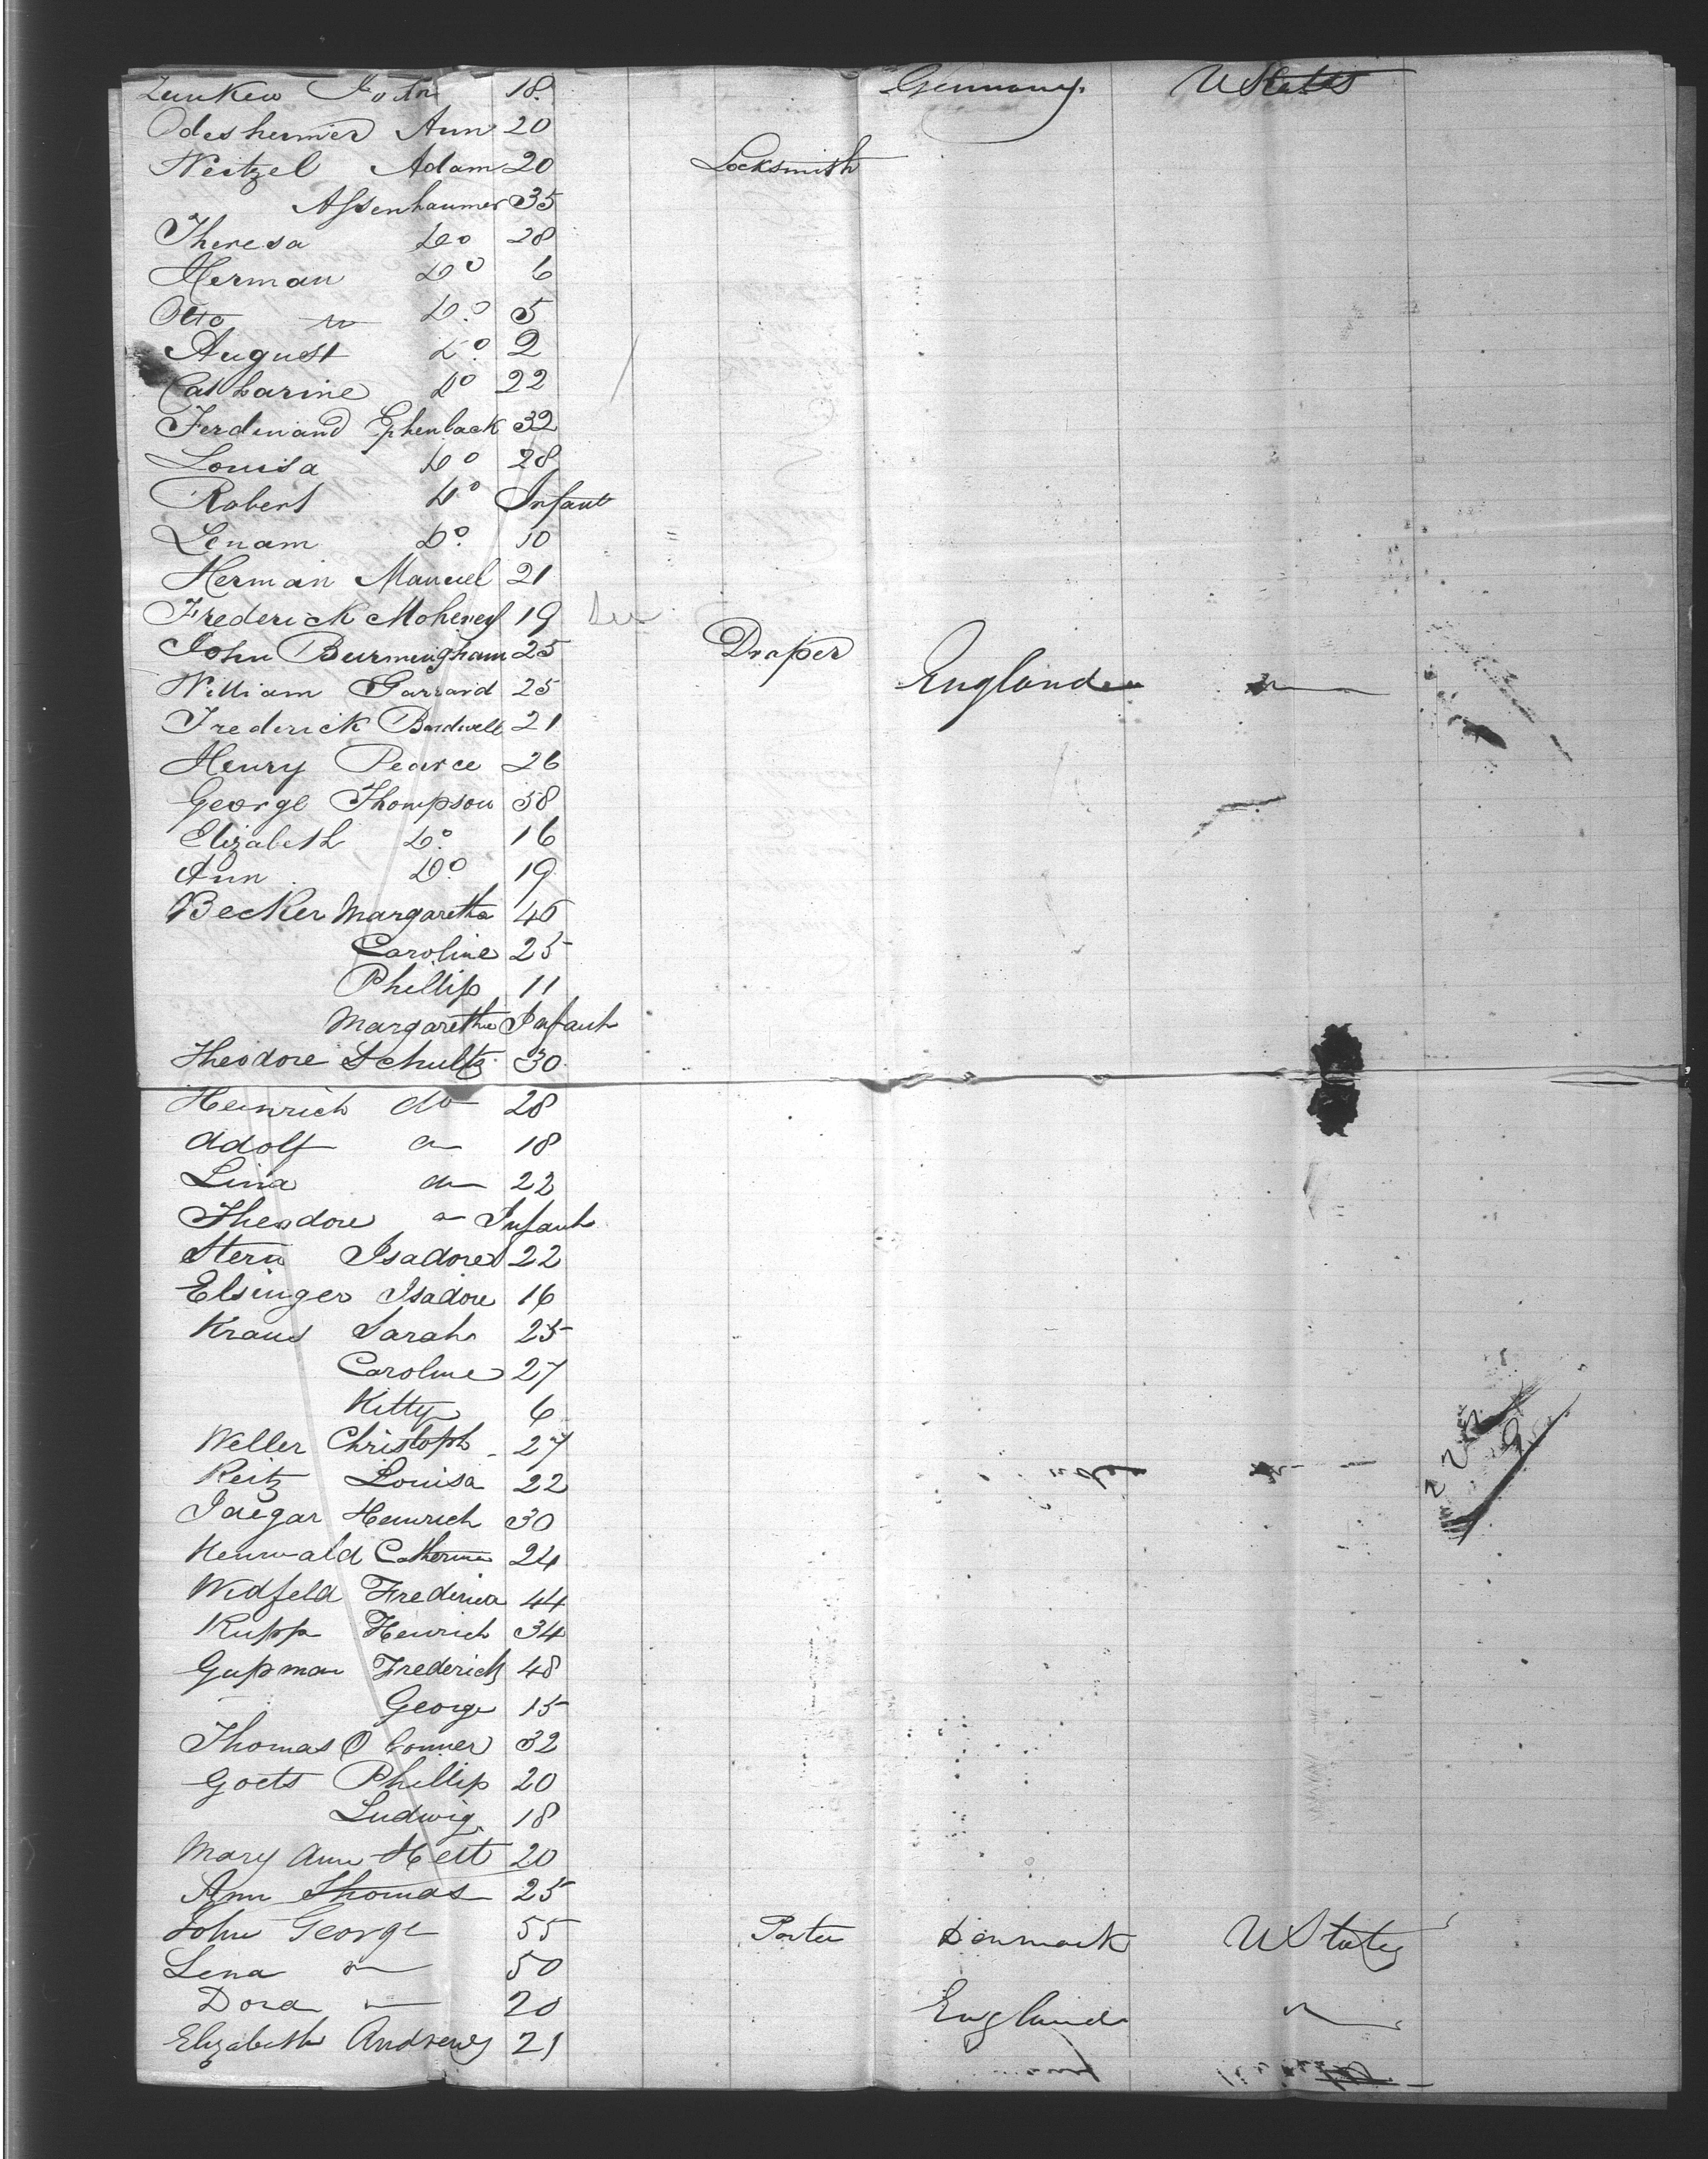 John 18. Germany. U States
Odeshermier Ann 20
Neitzel Adam 20 Locksmith
Assenhaumer 35
Theresa Do 28
Herman Do 6
Otto Do 5
August Do 2
Catharine Do 22
Ferdinand Ephenback 32
Louisa Do 28
Robert Do Infant
Lenam Do 10
Herman Manuel 21
Frederick 19
John Burmingham 25 Draper
William Garrard 25 England
Frederick Bardwell 21
Henry Pearce 26
George Thompson 58
Elizabeth Do 16
Ann Do 19
Becker Margaretha 46
Caroline 25
Phillip 11
Margaretha Infant
Theodore Schultz 30
Heinrich do 28
Adolf 18
Lina do 22
Theodore Infant
Stern Isadore 22
Elsinger Isadore 16
Kraus Sarah 25
Caroline 27
Kitty 6
Weller Christoph 27
Reitz Louisa 22
Jaegar Heinrich 30
Catherine 24
Widfeld Frederica 44
Rupp Heinrich 34
Gupman Frederick 48
George 15
Thomas O Conner 32
Goets Phillip 20
Ludwig 18
Mary Ann Hett 20
Ann Thomas 25
John George 55 Porter Denmark U States
Lena 50
Dora 20 England
Elizabeth Andrews 21